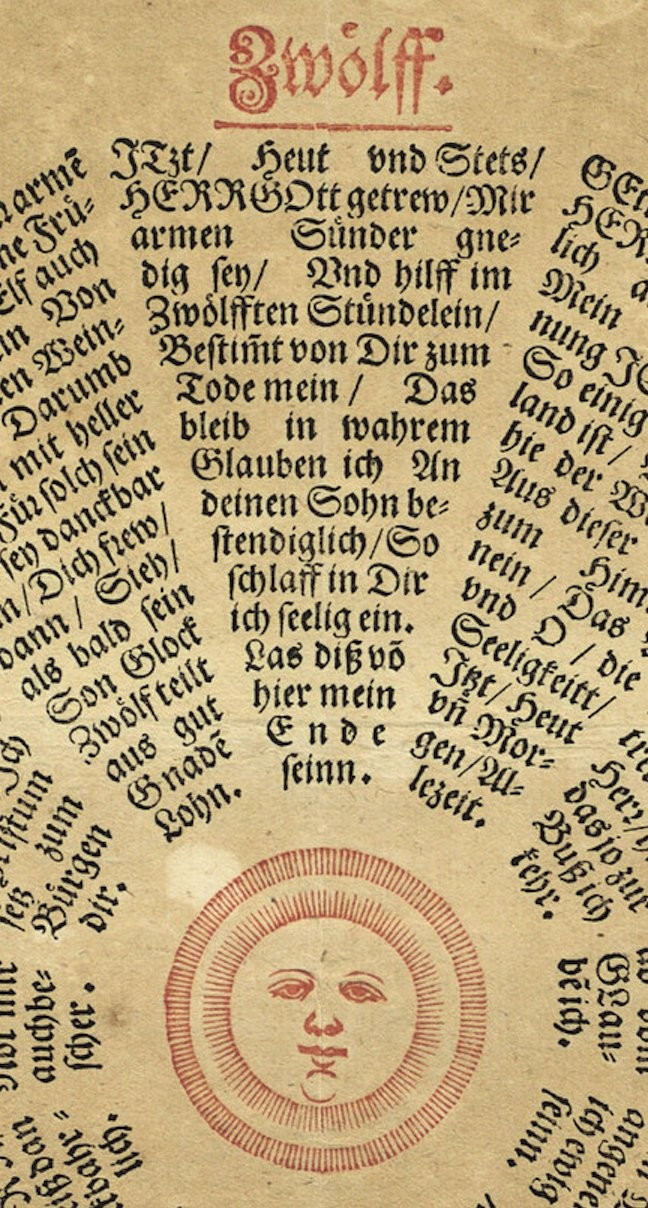 Zwölff.
JTzt/ Heut vnd Stets/
HERRGOtt getrew/Mir
armen Sünder gne⸗
dig sey/ Vnd hilff im
Zwölfften Stündelein/
Bestim̃t von Dir zum
Tode mein / Das
bleib in wahrem
Glauben ich An
deinen Sohn be⸗
stendiglich/So
schlaff in Dir
ich seelig ein.
Las diß võ
hier mein
Ende
seinn.
armẽ
ne Frü⸗
Elf auch
Von
Wein⸗
Darumb
mit heller
Für solch sein
sey danckbar
/Dich frew/
dann/ Sieh/
als bald sein
Son Glock
Zwölf teilt
aus gut
Gnadẽ
Lohn.
lich
Mein
nung
So einig
land ist/
hie der
Aus dieser
zum
nein / Das
vnd O / die
Seeligkeitt/
Jtzt/Heut
vñ Mor⸗
gen/Al⸗
lezeit.
Herr/
das jo zur
Buß ich
kehr.
Ich
zum
Bürgen
dir.
auchbe⸗
scher.
lich.
Glau⸗
bẽ ich.
ich ewig
seinn.